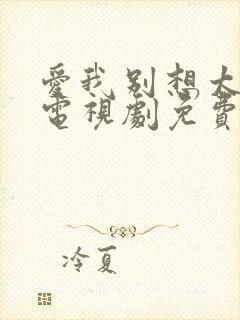 愛我別想太
電視劇免費
冷夏